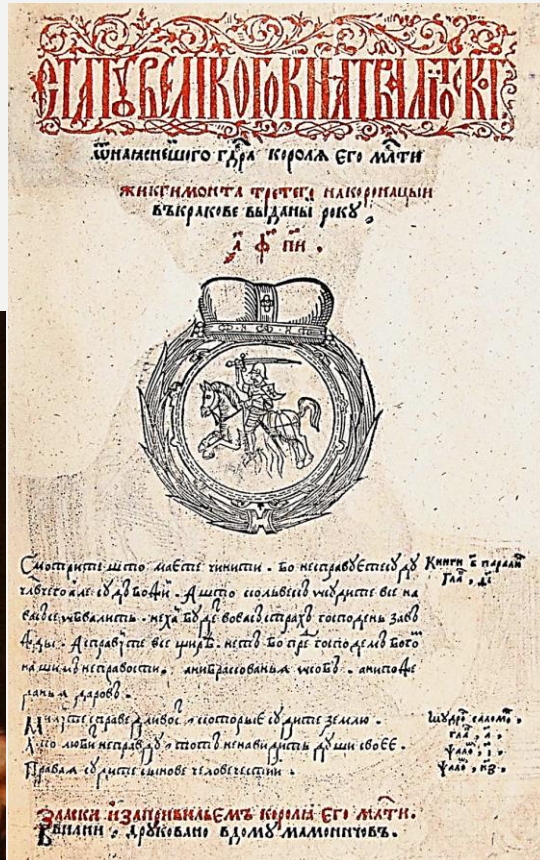 СТАТꙋ ВЕЛИКОГО КНꙖТВА ЛИТОСКОГ
ѿ наꙗснешого гдрѧ королѧ его млти
жикгимонта третего накоронацыи
въкракове выданы року ,
҂а ф пи .
Смотрите што маете чинити . бо несправуете суду
члвчего але судъ божи . А што сколвекъ усудите все на
васъ се ѡбвалить . нехай буде
а справуте все . нестъ бо пре господемъ бого
нашимъ неправости , анибракованьѧ ѡсобъ . анипоже
даньѧ даровъ .
Милуйте справедливос , которые судите землю .
А хто любить неправду , тотъ ненавидить души своее .
Правая судите сынове человечестии .
Книги в парали
Гла , ді
Мудро саломо ,
гла , а ,
ѱало , і ,
ѱало , нз .
Зласки изапривильемъ королѧ его млти .
Ввилни . друковано вдому мамоничовъ .